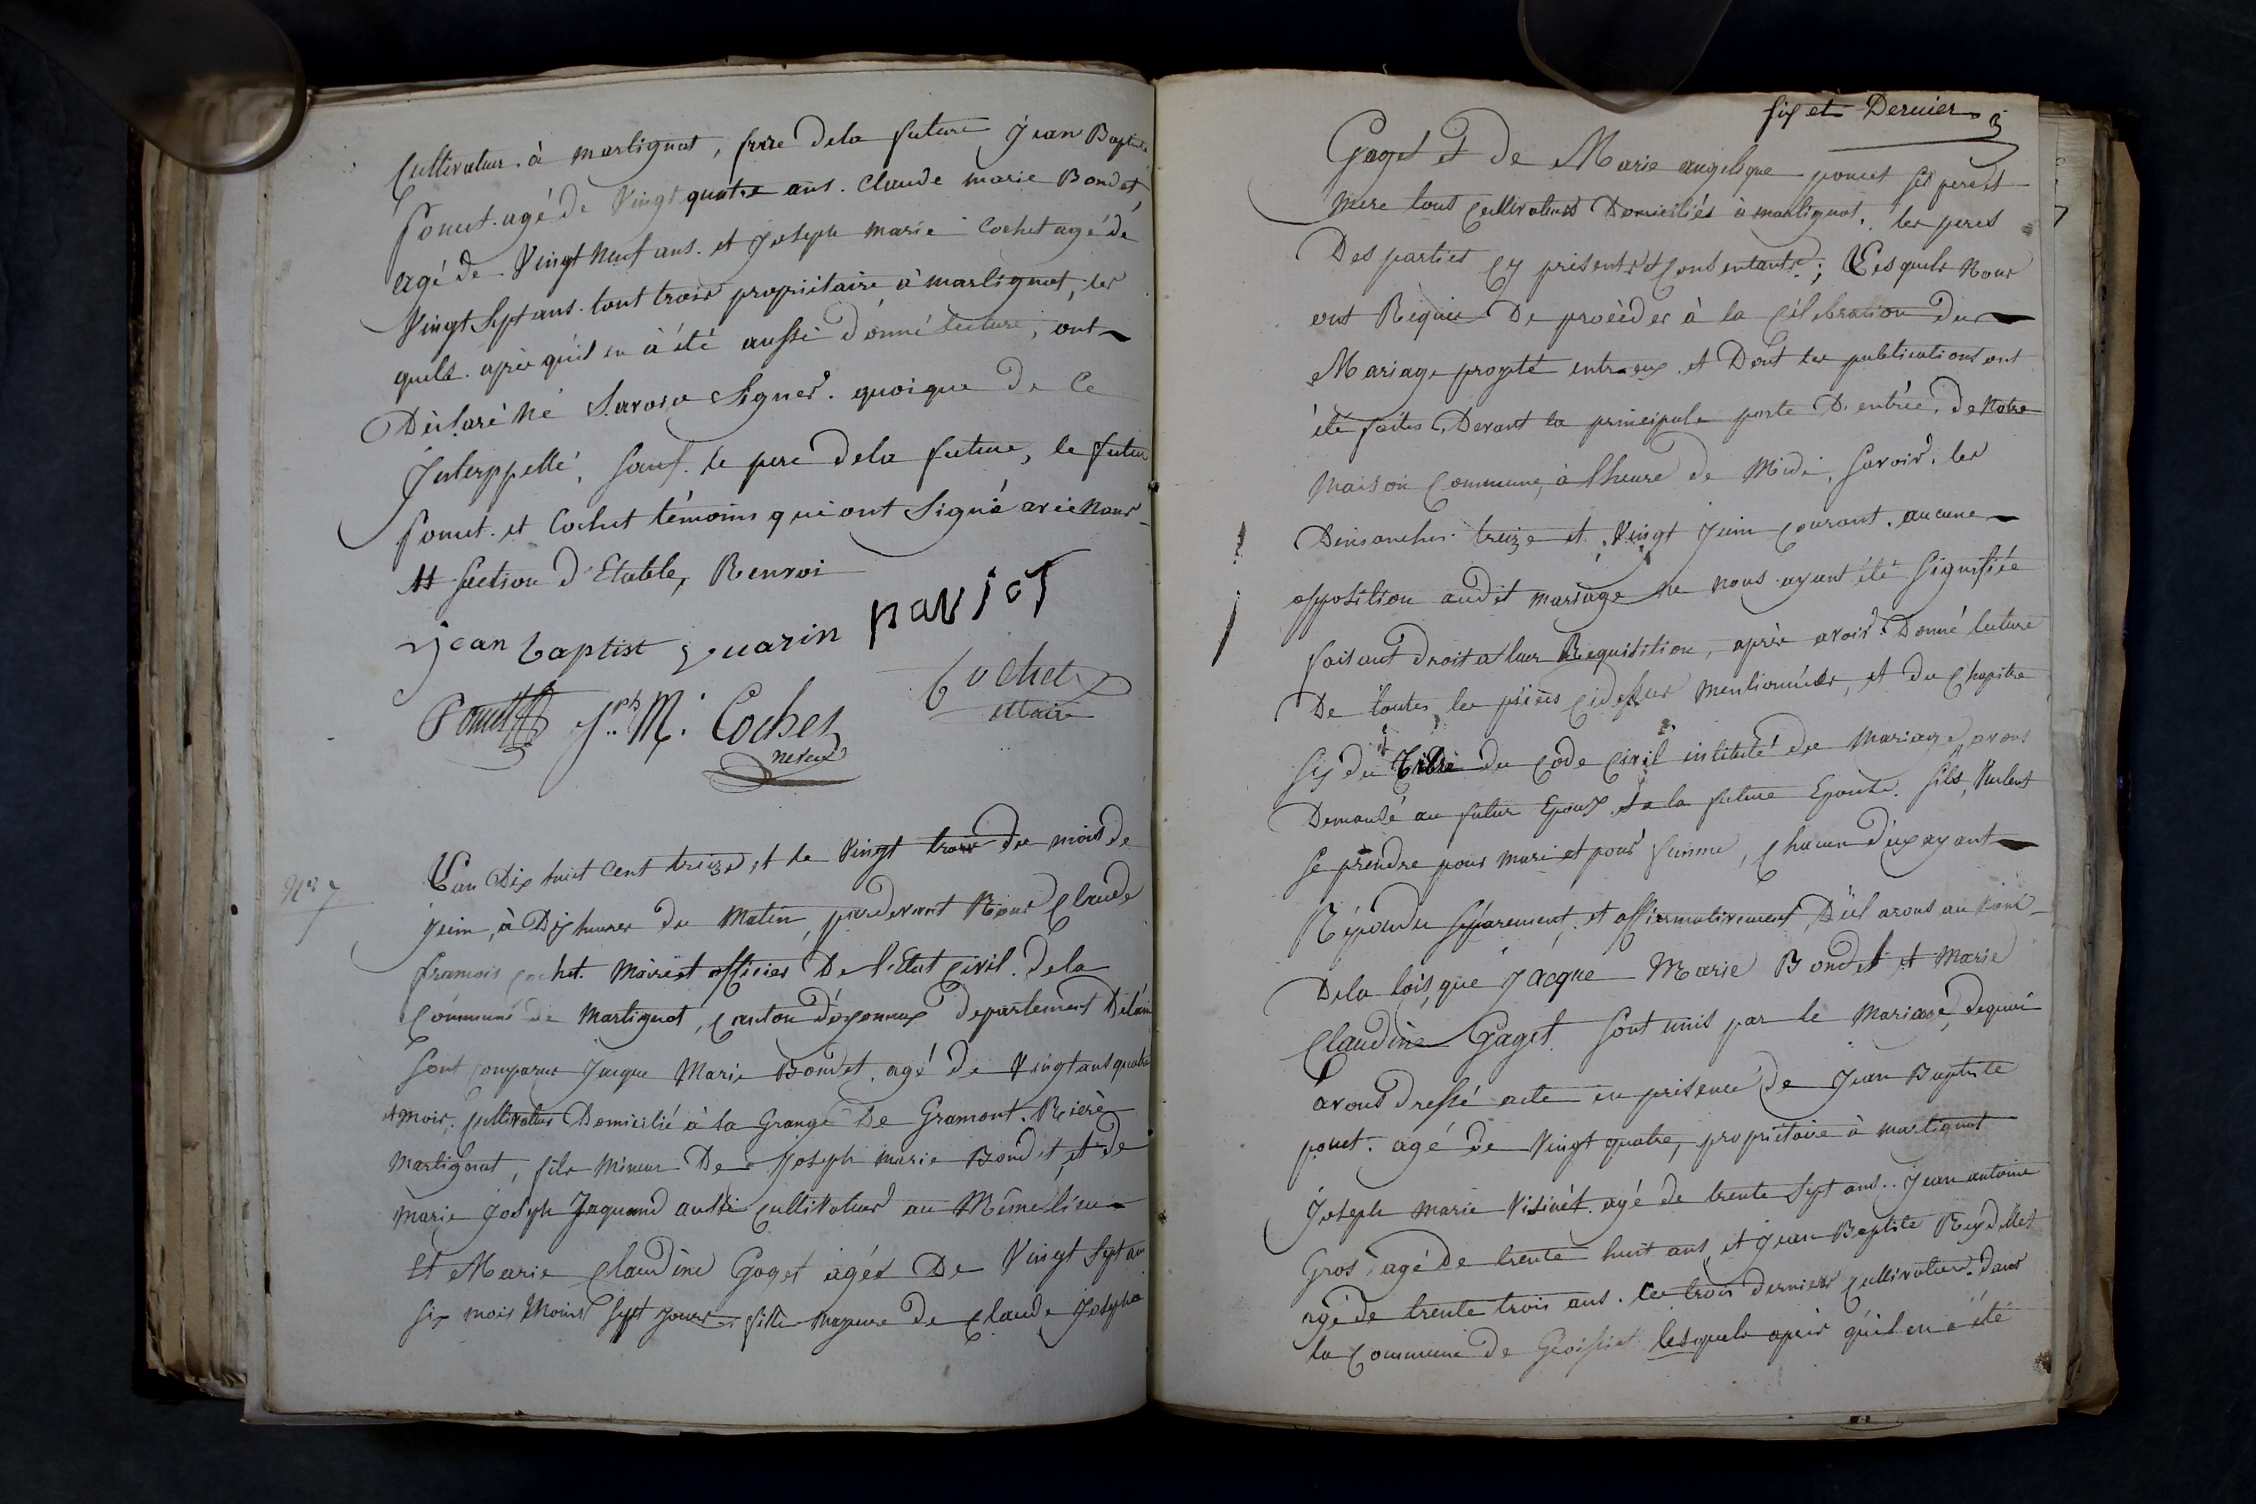 Cultivateur à martignat, frere dela future Jean Baptiste
Poncet agé de Vingt quatre ans. Claude marie Bondet
agé de Vingt Neuf ans. et Joseph marie Cochet agé de
Vingt Sept ans. tout trois propriétaire à martignat, les
quels après qu'il en à été aussi donné lecture, ont
Déclaré Ne Savoir Signer. quoique de Ce
Interppellé, Sauf. le pere dela future, le futur
Poncet. et Cochet témoins qui ont Signé avec Nous
Section d'Etable, Renvoi
jean baptist guarin
Cochet
Maire
Poncet Jph. M. Cochet
neveux
No 7
L'an Dix huit Cent treize, et le Vingt trois du mois de
juin, à Dix heures du Matin, pardevant Nous Claude
francois Cochet Maire et officier De l'Etat Civil. dela
Commune de Martignat, Canton d'oyonnax departement Delain
Sont Comparus Jacque Marie Bondet, agé de Vingt ans quatre
mois, Cultivateur Domicilié à la Grange De Gramont. Riere
Martignat, fils Mineur De Joseph marie Bondet, et de
marie Joseph Jaquand aussi Cultivateurs au Même lieu
Et Marie Claudine Goget agée De Vingt Sept ans
Six mois Moins Sept jours, fille majeure de Claude Joseph
Six et Dernier
Goget et de Marie angelique poncet Ses pere et
Mere tous Cultivateurs Domiciliés à martignat. les peres
Des parties Cy présents et Consentants; Lesquels Nous
ont Requis De procéder à la Célébration du
Mariage projeté entr'eux et Dont les publications ont
été faites Devant la principale porte D'entrée, de Notre
Maison Commune, à l'heure de Midi, Savoir. les
Dimanches treize et Vingt Juin Courant. aucune
opposition audit mariage ne nous ayant été Signifiée
faisant droit a leur Requisition, après avoir Donné lecture
De toutes les pièces Cidessus mentionnées, et du Chapitre
Six du titre du Code Civil intitulé du Mariage, avons
Demandé au futur Epoux et a la future Epouse. S'ils Veulent
Se prendre pour mari et pour femme, Chacun d'eux ayant
Répondu Séparement. et affirmativement, avons au Nom
Dela loi, que Jacque Marie Bondet et Marie
Claudine Goget Sont unis par le Mariage, dequoi
avons dressé acte en présence de Jean Baptiste
poncet. agé de Vingt quatre, propriétaire à martignat
Joseph marie Visinet. agé de trente Sept ans. Jean antoine
Gros, agé de trente huit ans, et Jean Baptiste Reydellet
agé de trente trois ans. les trois derniers Cultivateurs. dans
la Commune de Geoissiat lesquels après qu'il en a été